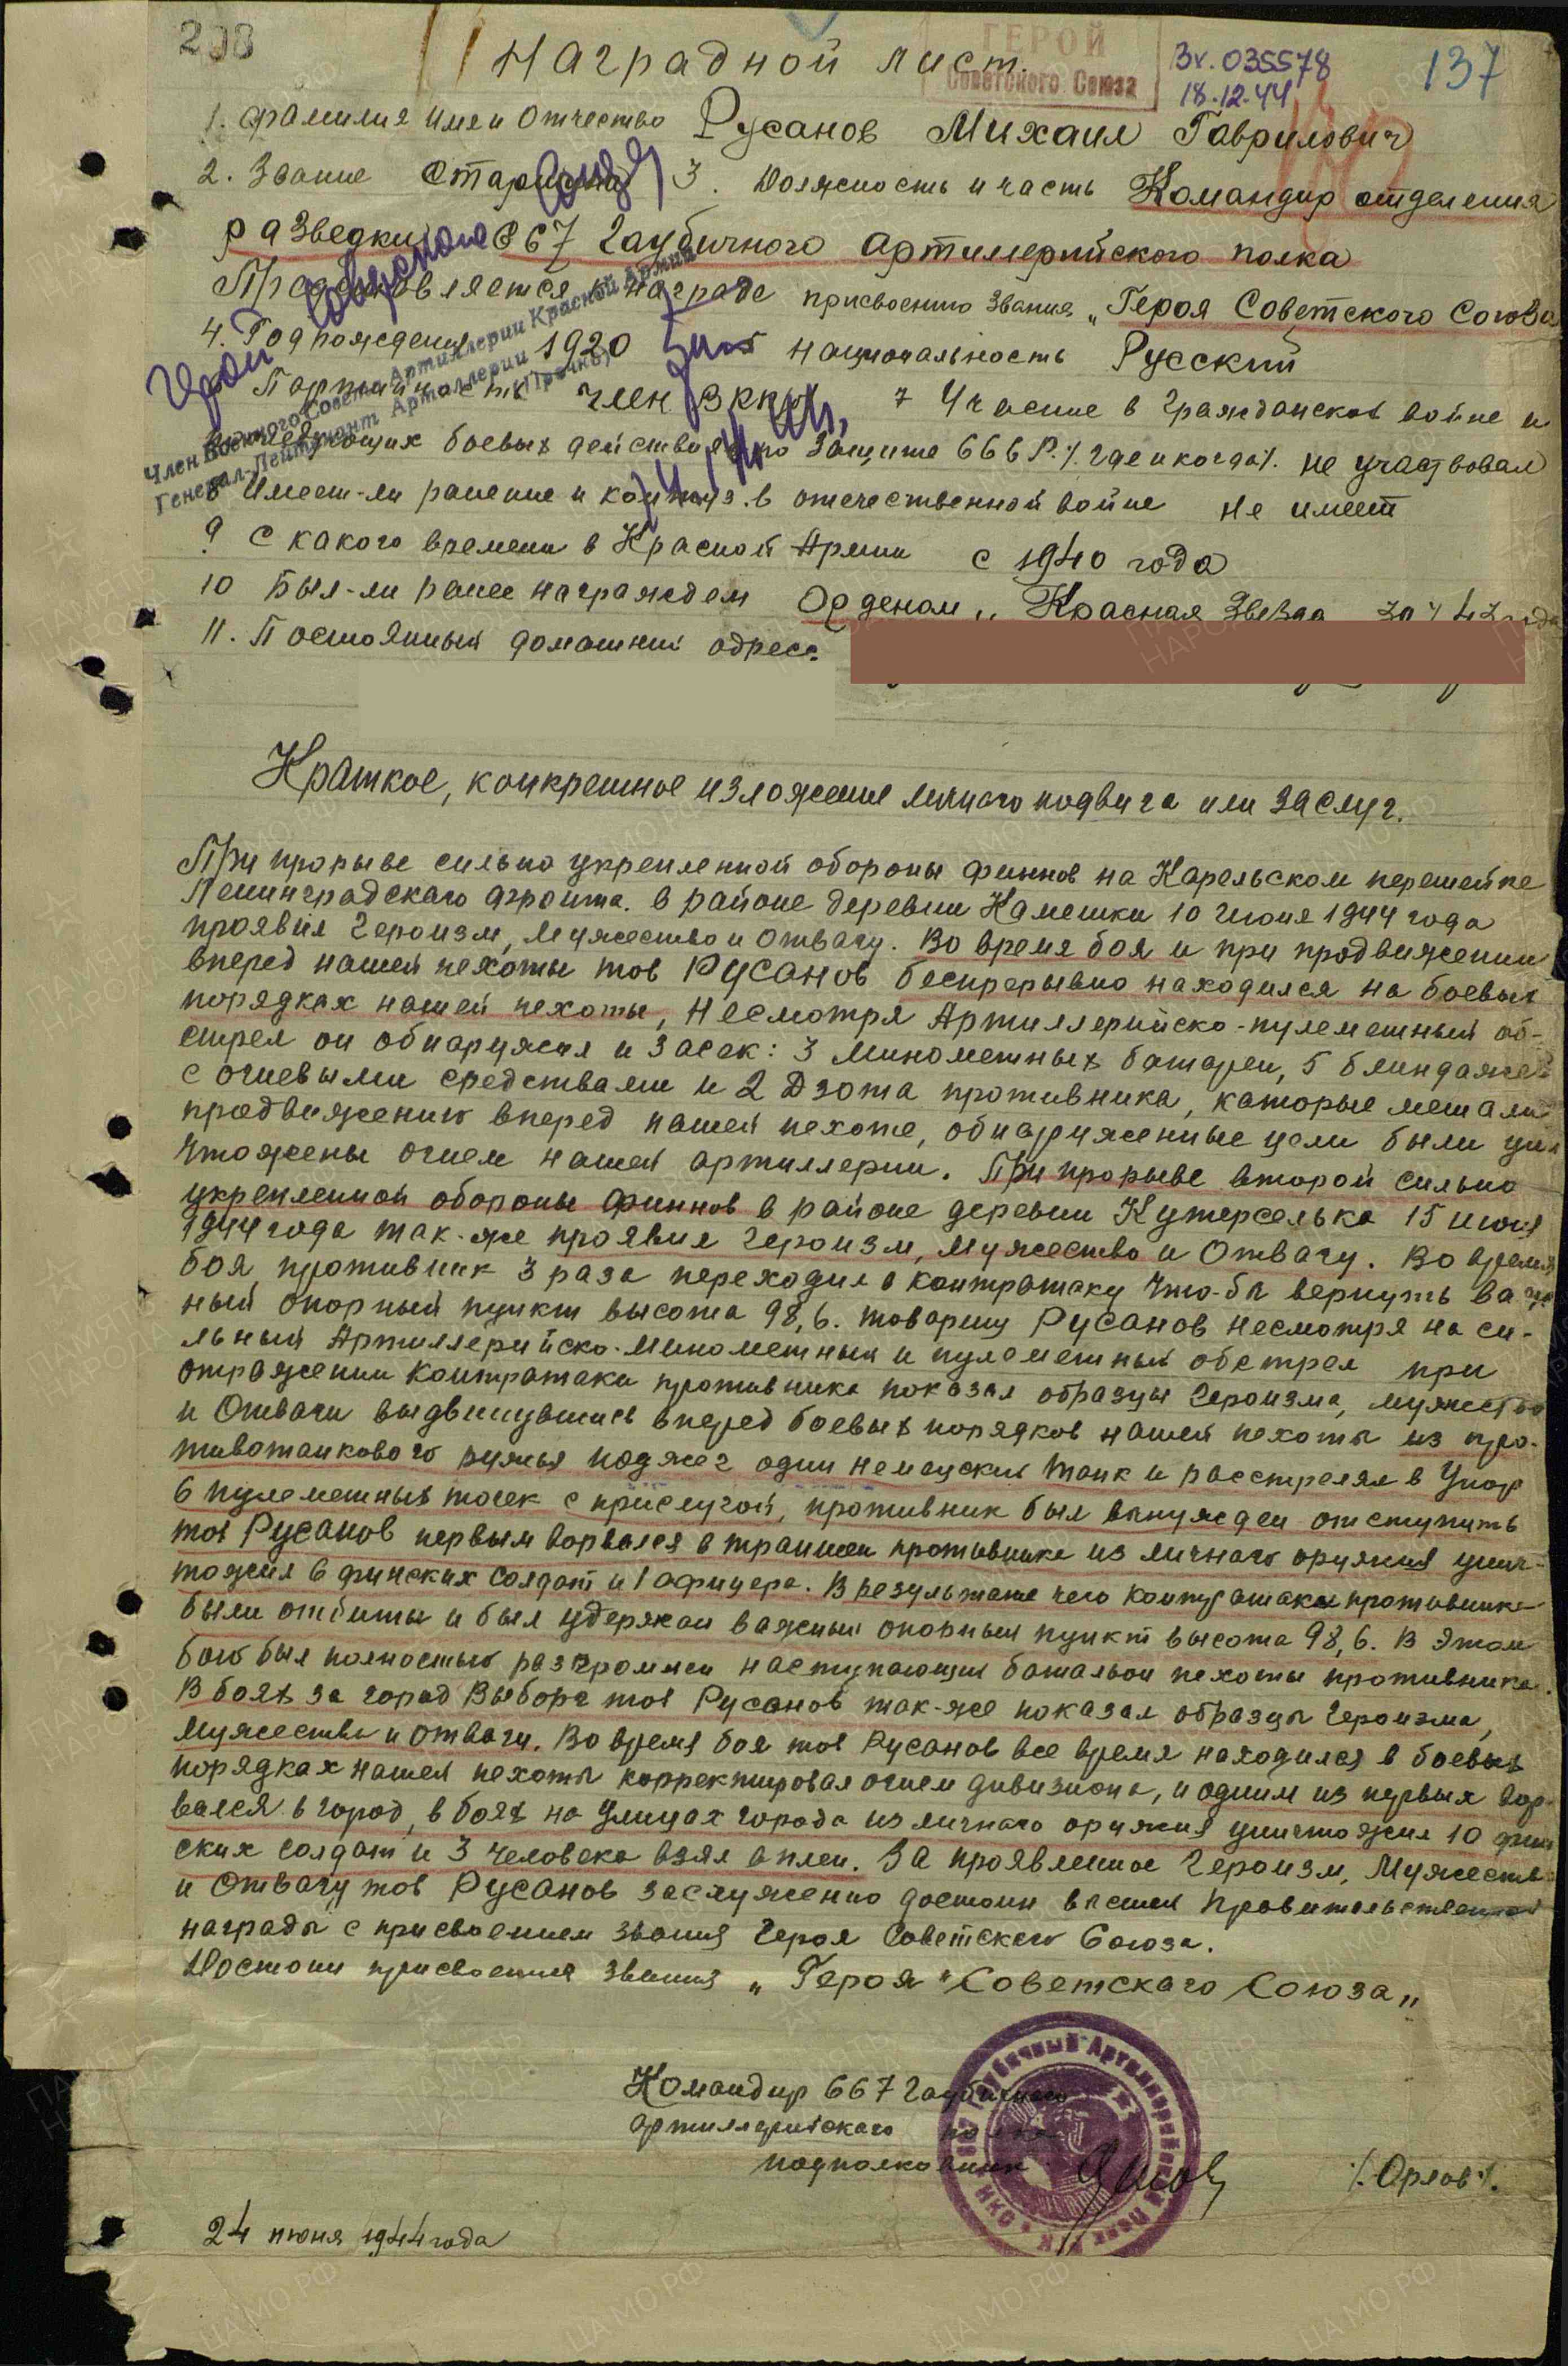 208
Наградной лист.
ГЕРОЙ
Советского Союза
Вх. 035578
18.12.44
137
1. Фамилия имя и отчество Русанов Михаил Гаврилович
2. Звание Старшина 3. Должность и часть Командир отделения
разведки 667 Гаубичного Артиллерийского полка
Представляется к награде присвоению звания „Героя Советского Союза
4. Год рождения 1920 5 национальность Русский
Партийность член ВКП/б/ 7 Участие в гражданской войне и
последующих боевых действиях по защите СССР /. где и когда /. не участвовал
8 Имеет-ли ранение и контуз. в отечественной войне не имеет
9 С какого времени в Красной Армии с 1940 года
10 Был-ли ранее награжден Орденом „Красная Звезда 43 года
11. Постоянный домашний адрес:
Герой Советского Союза
Член Военного Совета Артиллерии Красной Армии
Генерал-Лейтенант Артиллерии (Прочко)
Краткое, конкретное изложение личного подвига или заслуг.
При прорыве сильно укрепленной обороны финнов на Карельском перешейке
Ленинградскаго фронта. в районе деревни Камешки 10 Июня 1944 года
проявил Героизм, Мужество и Отвагу. Во время боя и при продвижении
вперед нашей пехоты тов Русанов беспрерывно находился на боевых
порядках нашей пехоты, Несмотря Артиллерийско-пулеметный об-
стрел он обнаружил и засек: 3 минометных батареи, 5 блиндажей
с огневыми средствами и 2 Дзота противника, каторые мешали
продвижению вперед нашей пехоте, обнаруженные цели были уни
чтожены огнем нашей артиллерии. При прорыве второй сильно
укрепленной обороны финнов в районе деревни Кутерселька 15 июня
1944 года так-же проявил Героизм, Мужество и Отвагу. Во время
боя, противник 3 раза переходил в контратаку что-бы вернуть важ
ный опорный пункт высота 98,6. товарищ Русанов несмотря на си-
льный Артиллерийско-Минометный и пулеметный обстрел при
отражении Контратаки противника показал образцы Героизма, мужество
и Отваги выдвинувшись вперед боевых порядков нашей пехоты из про-
тивотанкового ружья поджег один немецкий танк и расстрелял в упор
6 пулеметных точек с прислугой, противник был вынужден отступить
тов Русанов первым ворвался в траншеи противника из личнаго оружия унич-
тожил 6 финских солдат и 1 афицера. В результате чего контратаки противника
были отбиты и был удержан важный опорный пункт высота 98,6. В этом
бою был полностью разгромлен наступающий батальон пехоты противника.
В боях за город Выборг тов Русанов так-же показал образцы Героизма,
Мужества и Отваги. Во время боя тов Русанов все время находился в боевых
порядках нашей пехоты корректировал огнем дивизиона, и одним из первых вор-
вался в город, в боях на улицах города из личнаго оружия уничтожил 10 фин
ских солдат и 3 человека взял в плен. За проявленное Героизм, Мужество
и Отвагу тов Русанов заслуженно достоин высшей Правительственной
награды с присвоением звания Героя Советского Союза.
Достоин присвоения звания „Героя Советскаго Союза„
Командир 667 Гаубичнаго
артиллерийскаго полка
подполковник /.Орлов/.
24 июня 1944 года